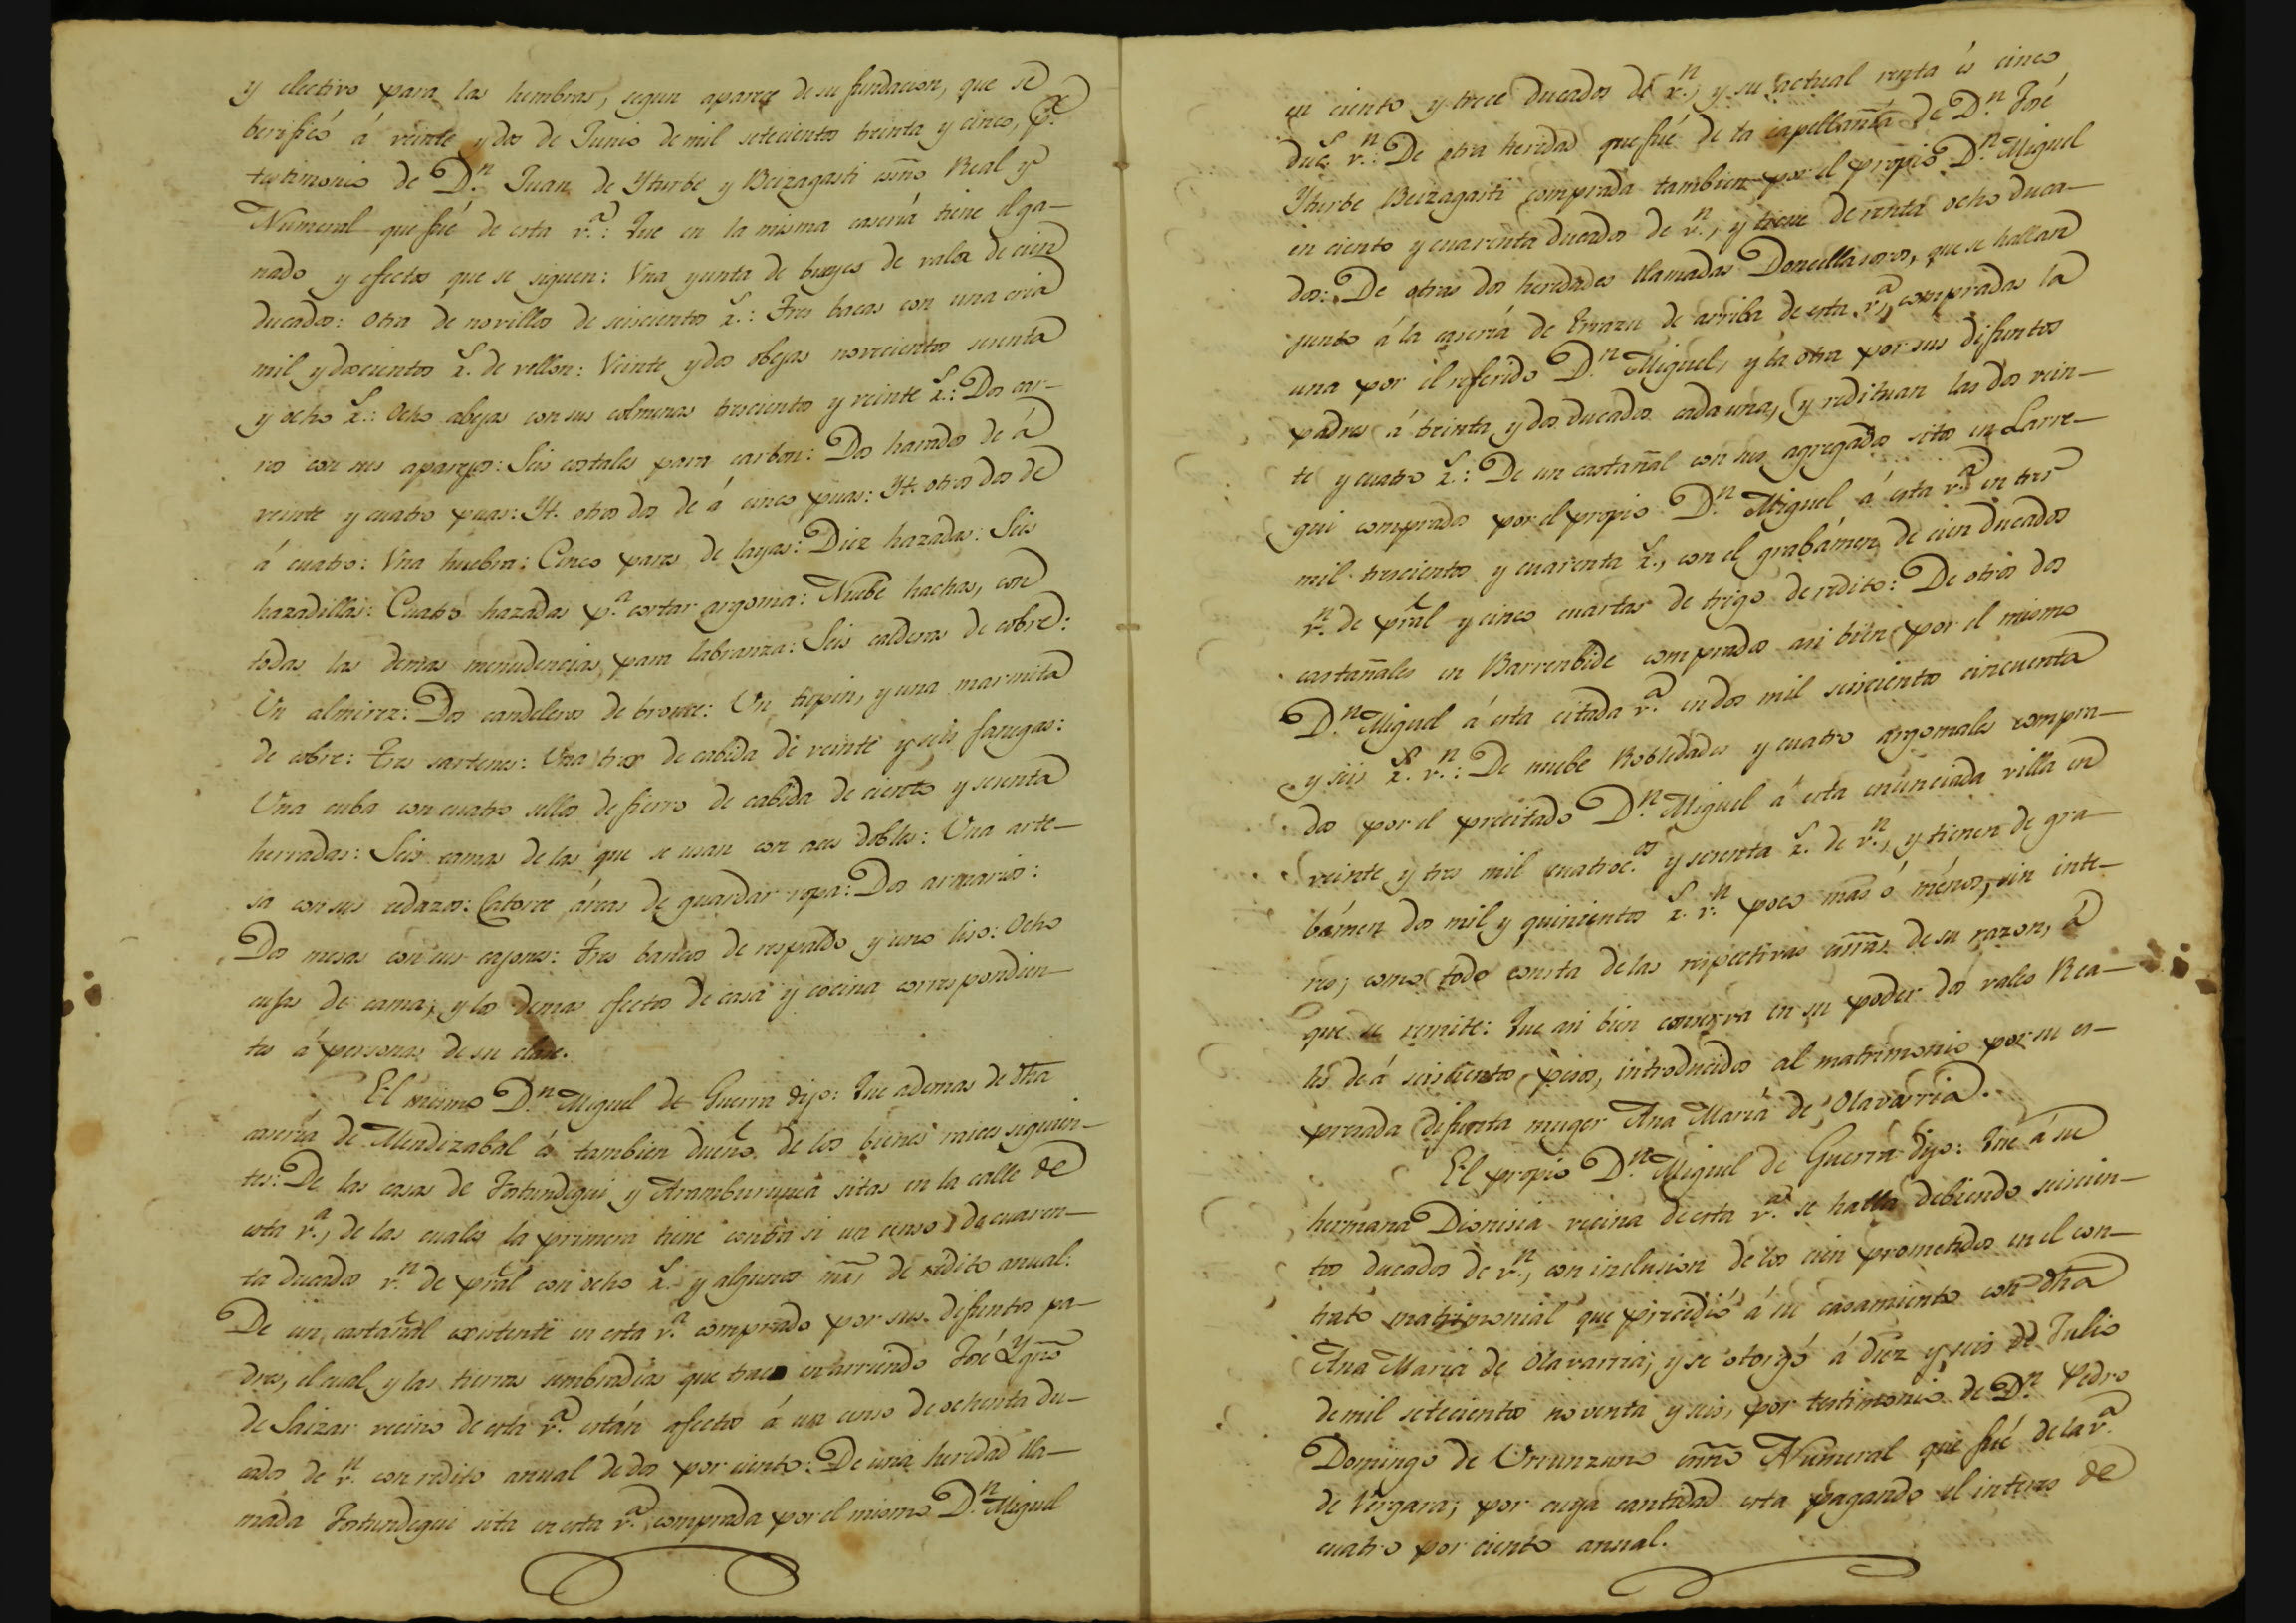 y electivo para las hembras, segun aparece de su fundacion, que se
berificó á veinte y dos de Junio de mil setecientos treinta y cinco, pr.
testimonio de Dn. Juan de Yturbe y Beizagasti esño Real y
Numeral que fué de esta va.: Que en la misma casería tiene el ga-
nado y efectos que se siguen: Una yunta de bueyes de valor de cien
ducados: Otra de novillos de seiscientos rs.: Tres bacas con una cria
mil y doscientos rs. de vellon: Veinte y dos obejas novecientos sesenta
y ocho rs.: Ocho abejas con sus colmenas trescientos y veinte rs.: Dos car-
ros con sus aparejos: Seis costales para carbon: Dos harados de á
veinte y cuatro puas: Yt. otros dos de á cinco puas: Yt. otros dos de
á cuatro: Una huebra: Cinco pares de layas: Diez hazadas: Seis
hazadillas: Cuatro hazadas pa. cortar argoma: Nuebe hachas, con
todas las demas menudencias para labranza: Seis calderas de cobre:
Un almirez: Dos candeleros de bronce: Un tupin, y una marmita
de cobre: Tres sartenes: Una trox de cabida de veinte y seis fanegas:
Una cuba con cuatro sellos de fierro de cabida de ciento y sesenta
herradas: Seis camas de las que se usan con aces dobles: Una arte-
sa con sus cedazos: Catorce árcas de guardar ropa: Dos armarios:
Dos mesas con sus cajones: Tres bancos de respaldo y uno liso: Ocho
cujas de cama; y los demas efectos de casa y cocina correspondien-
tes á personas de su clase.
El mismo Dn. Miguel de Guerra dijo: Que ademas de dha
casería de Mendizabal és tambien dueño de los bienes raices siguien-
tes: De las casas de Fortundegui y Aramburuyuca sitas en la calle de
esta va., de las cuales la primera tiene contra si un censo de cuaren-
ta ducados vn. de pral con ocho rs. y algunos mrs. de rédito anual:
De un castañal existente en esta va. comprado por sus difuntos pa-
dres, el cual y las tierras sembradias que trae en arriendo José Ygno
de Saizar vecino de esta va. están afectos á un censo de ochenta du-
cados de vn. con redito anual de dos por ciento: De una heredad lla-
mada Fortundegui sita en esta va. comprada por el mismo Dn. Miguel
en ciento y trece ducados de vn., y su actual renta és cinco
ducs. vn.: De otra heredad que fué de la capellanía de Dn. José
Yturbe Beizagasti comprada tambien por el propio Dn. Miguel
en ciento y cuarenta ducados de vn., y tiene de renta ocho duca-
dos: De otras dos heredades llamadas Doncellasoro, que se hallan
junto á la casería de Errazu de arriba de esta va., compradas la
una por el referido Dn. Miguel, y la otra por sus difuntos
padres á treinta y dos ducados cada una, y redituan las dos vein-
te y cuatro rs.: De un castañal con sus agregados sitos en Larre-
gui comprados por el propio Dn. Miguel á esta va. en tres
mil trescientos y cuarenta rs., con el grabámen de cien ducados
vn. de pral y cinco cuartas de trigo de redito: De otros dos
castañales en Barrenbide comprados asi bien por el mismo
Dn. Miguel á esta citada va. en dos mil seiscientos cincuenta
y seis rs. vn.: De nuebe Robledades y cuatro argomales compra-
dos por el precitado Dn. Miguel á esta enunciada villa en
veinte y tres mil cuatrocos. y sesenta rs. de vn., y tienen de gra-
bámen dos mil y quinientos rs. vn. poco mas ó ménos, sin inte-
res; como todo consta de las respectivas esrras. de su razon, á
que se remite: Que asi bien conserva en su poder dos vales Rea-
les de á seiscientos pesos, introducidos al matrimonio por su es-
presada difunta muger Ana María de Olavarria.
El propio Dn. Miguel de Guerra dijo: Que á su
hermana Dionisia vecina de esta va. se halla debiendo seiscien-
tos ducados de vn., con inclusion de los cien prometidos en el con-
trato matrimonial que precedió á su casamiento con dha
Ana María de Olavarria; y se otorgó á diez y seis de Julio
de mil setecientos noventa y seis, por testimonio de Dn. Pedro
Domingo de Urrunzuno esño Numeral que fué de la va.
de Vergara; por cuya cantidad esta pagando el interes de
cuatro por ciento anual.